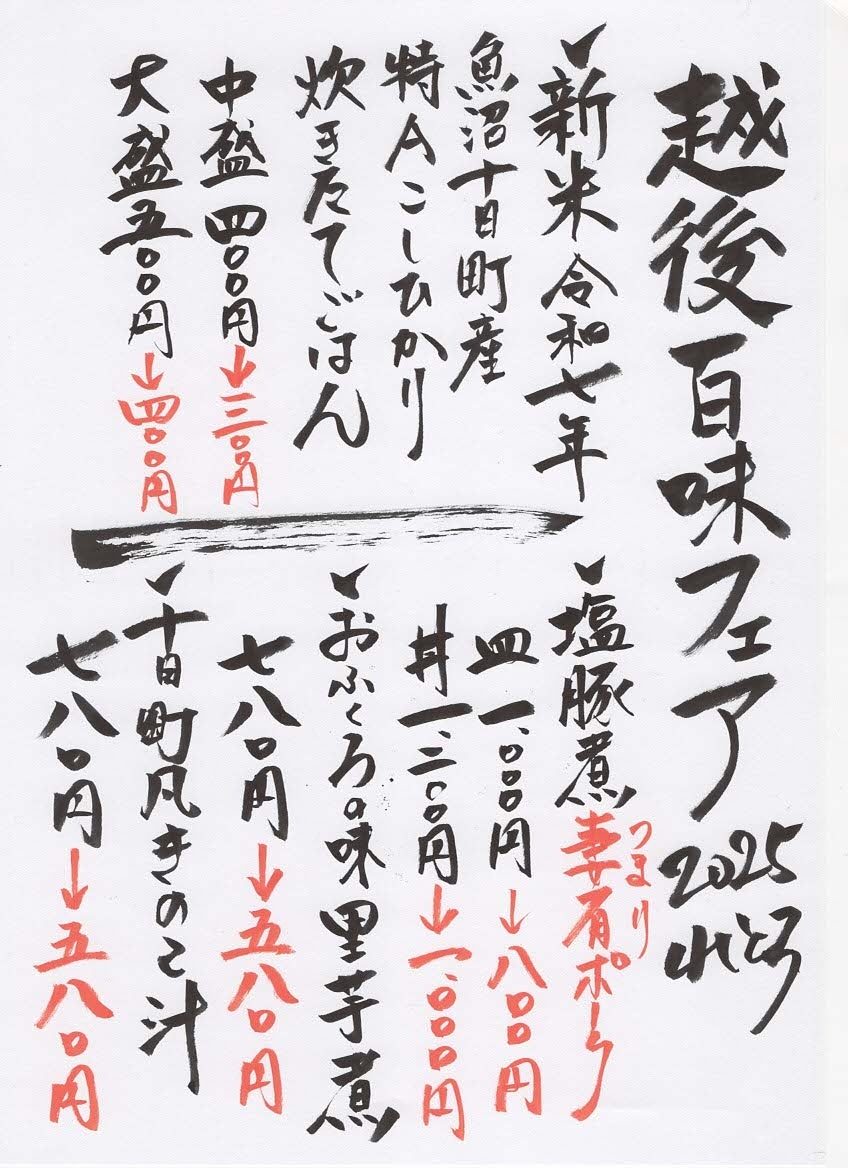 越後百味フェア2025 れとろ
新米令和七年
魚沼十日町産
特Aこしひかり
炊きたてごはん
中盛四〇〇円→三〇〇円
大盛五〇〇円→四〇〇円
塩豚煮妻有ポーク
つまり
皿一、〇〇〇円→八〇〇円
丼一、二〇〇円→一、〇〇〇円
おふくろの味里芋煮
七八〇円→五八〇円
十日町風きのこ汁
七八〇円→五八〇円